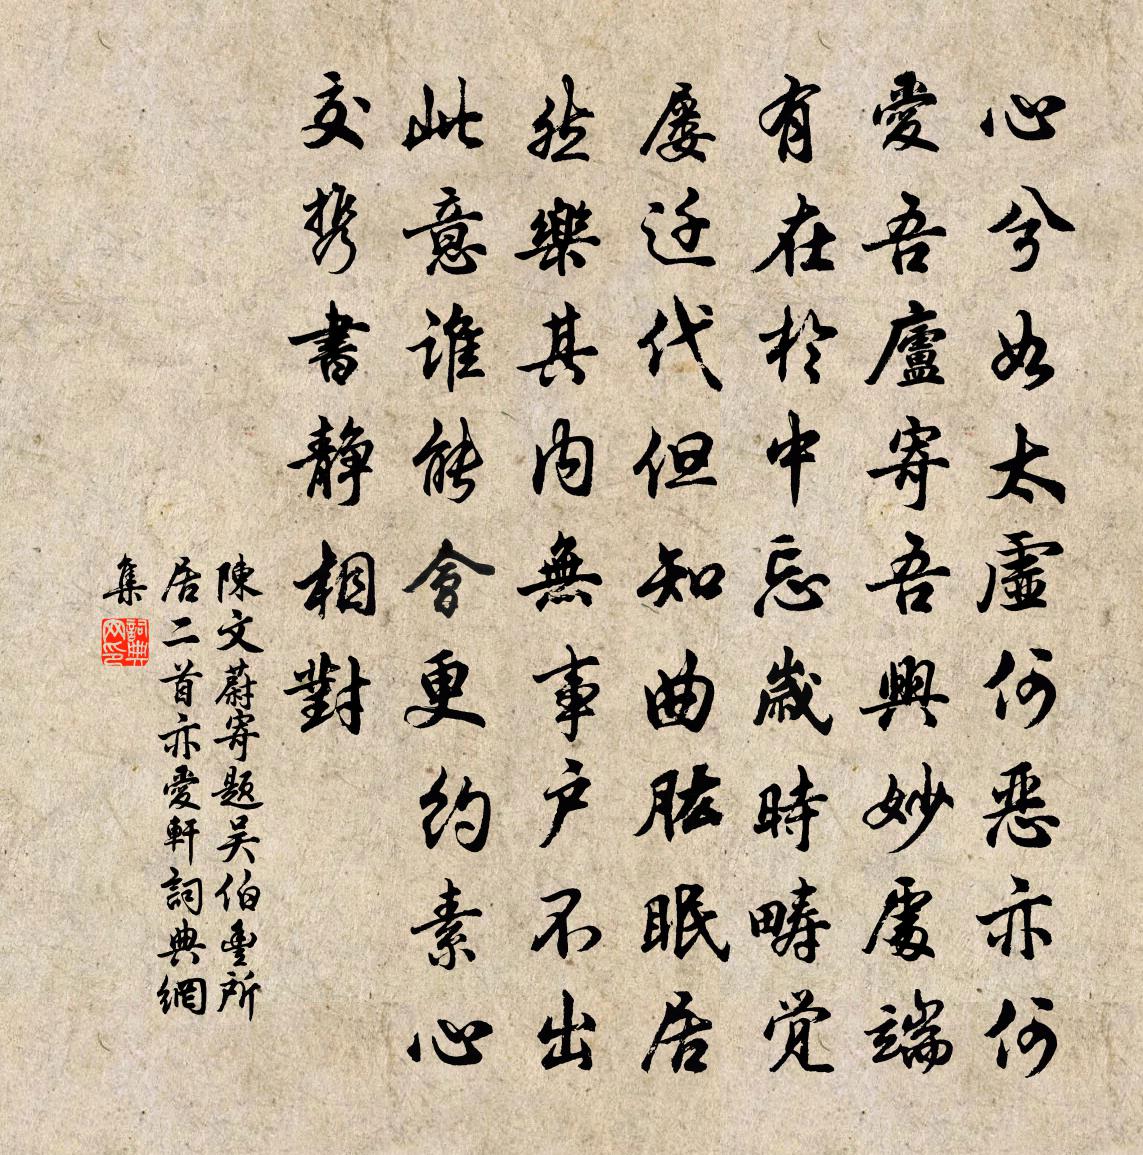 心兮如太虛何惡亦何
愛吾廬寄吾興妙處端
有在於中忘歲時疇覺
屢迁代但知曲肱眠居
然樂其內無事户不出
此意谁能會更约素心
交携書静相對
陳文蔚寄题吴伯豊所
居二首亦愛軒詞典網
集
詞典网印